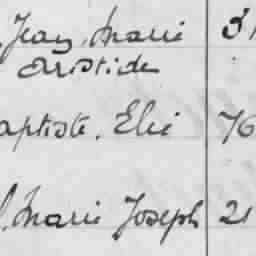 Jean, Marie 31
Aristide
aptiste, Elie 76
l, Marie Joseph 21